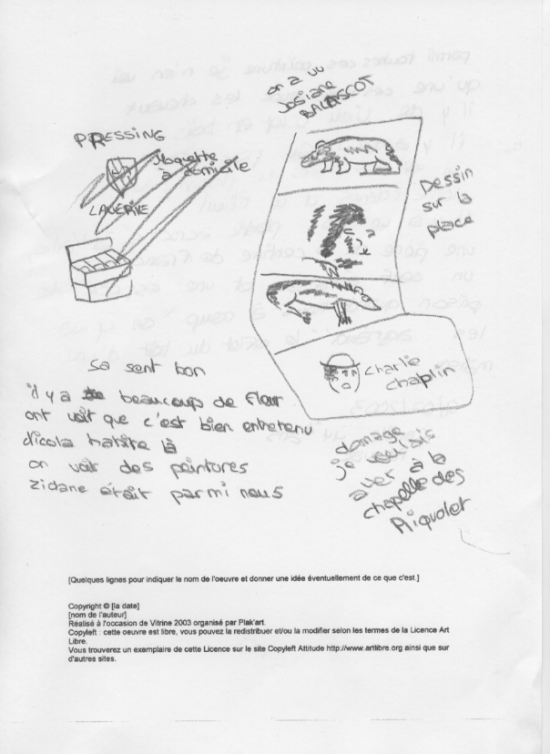 on a vu
Josiane
BALASCOT
PRESSING
Moquette
à domicile
LAVERIE
Dessin
sur la
place
charlie
chaplin
sa sent bon
il y a beaucoup de fleur
ont voit que c'est bien entretenu
Nicola habite là
on voit des peintures
zidane était parmi nous
domage
je voulais
aller à la
chapelle des
[Quelques lignes pour indiquer le nom de l'oeuvre et donner une idée éventuellement de ce que c'est.]
Copyright © [la date]
[nom de l'auteur]
Réalisé à l'occasion de Vitrine 2003 organisé par Plak'art.
Copyleft : cette oeuvre est libre, vous pouvez la redistribuer et/ou la modifier selon les termes de la Licence Art
Libre.
Vous trouverez un exemplaire de cette Licence sur le site Copyleft Attitude http://www.artlibre.org ainsi que sur
d'autres sites.